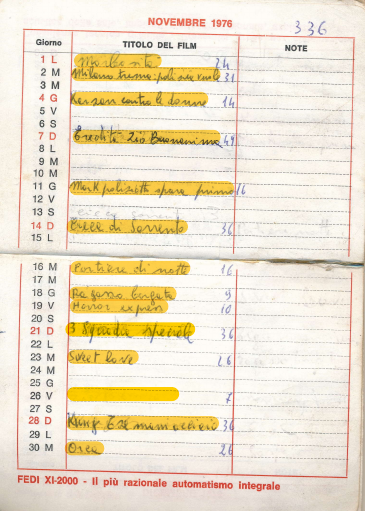 NOVEMBRE 1976 336
Giorno TITOLO DEL FILM NOTE
1 L 24
2 M Milano trema: polizia vuole 31
3 M
4 G contro le donne 14
5 V
6 S
7 D Eredità zio Buonanima 49
8 L
9 M
10 M
11 G Mark poliziotto spara primo 16
12 V
13 S
14 D di Sorrento 36
15 L
16 M Portiere di notte 16
17 M
18 G Ragazza 9
19 V Horror express 10
20 S
21 D 3 Squadra speciale 36
22 L
23 M Sweet love 26
24 M
25 G
26 V 7
27 S
28 D Kung 36
29 L
30 M Orca 26
FEDI XI-2000 - Il più razionale automatismo integrale